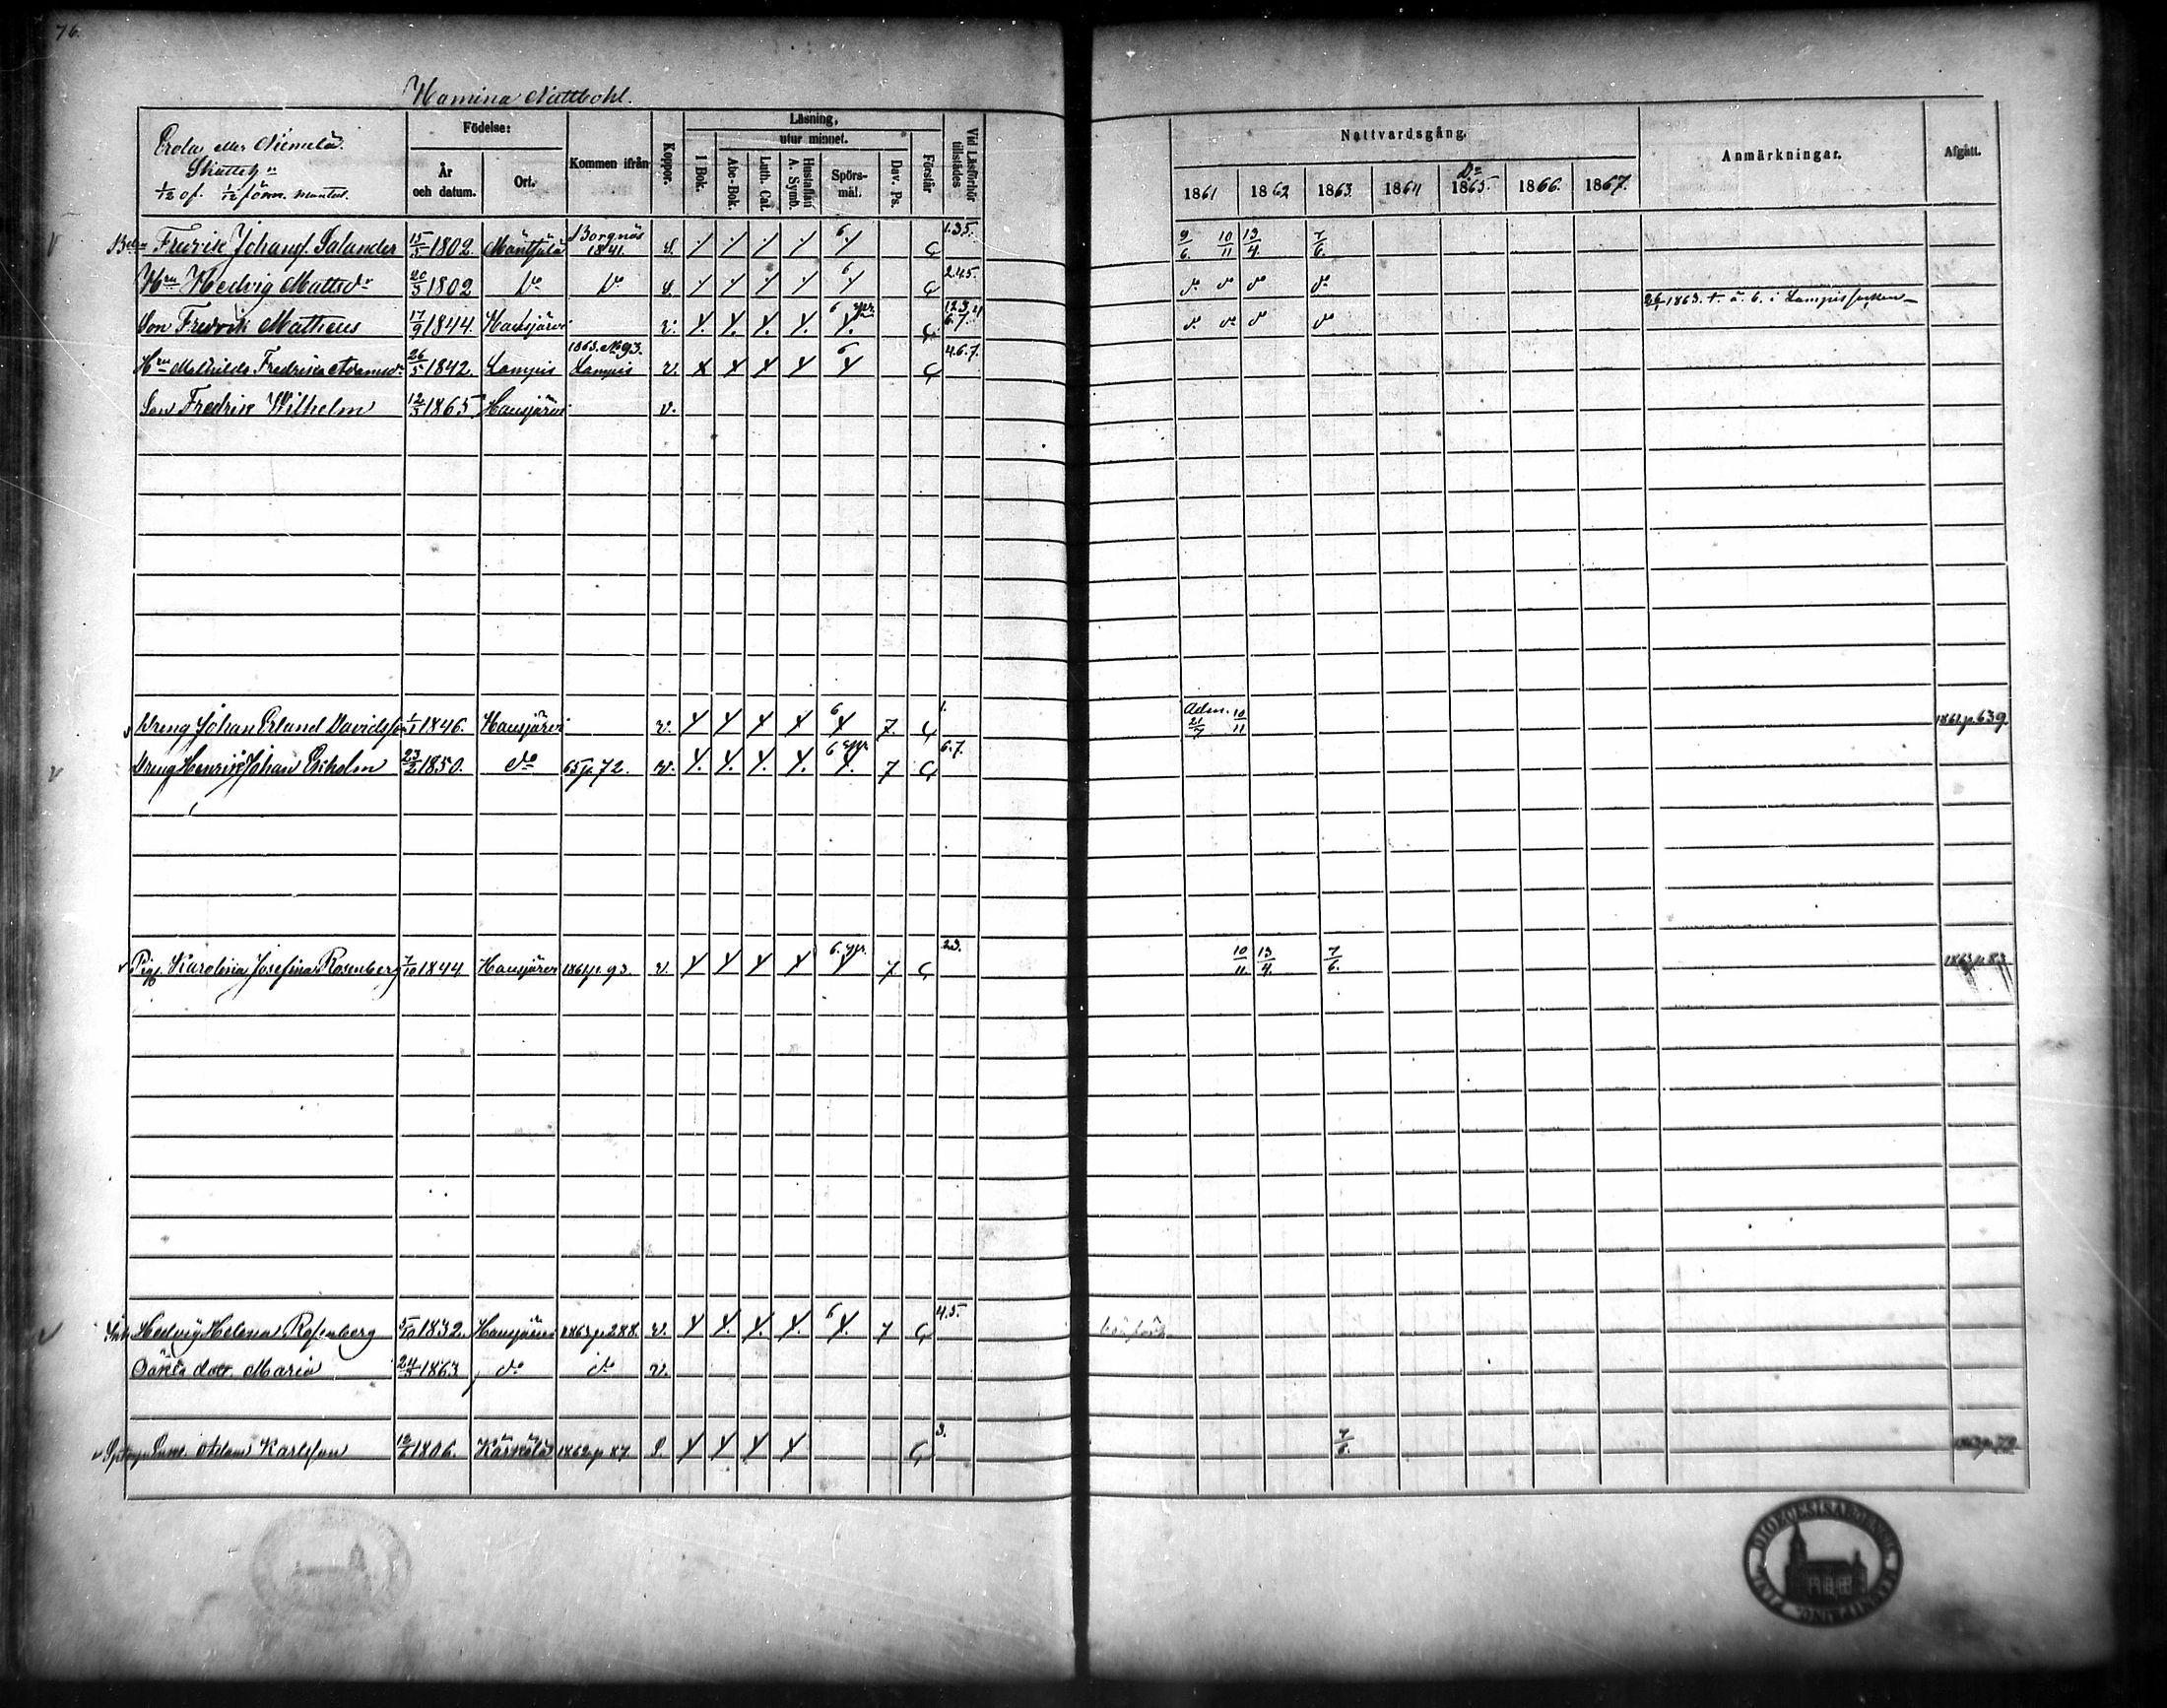 76.
Hamina Nattbohl.
Erola eller Niemelä
Skatteh
1/2 of. 1/12 förm. mantal.
Födelse:
År och datum.
Ort.
Kommen ifrån
Koppor.
Läsning,
utur minnet.
I Bok.
Abc-Bok.
Luth. Cat.
Hustaflan A. Symb.
Spörsmål.
Dav. Ps.
Förstår
Vid Läsförhör tillstädes
Nattvardsgång.
1861 1862 1863. 1864 1865. 1866. 1867.
Anmärkningar.
Afgått.
Fredrik Johansf. Salander 15/5 1802. Mäntsälä Borgnäs 1841. 1.3.5. 9/6. 10/11 13/4. 7/6.
Hru Hedvig Mattsdr 20/3 1802 do do 6 2.4.5. do do do do
Son Fredrik Matheus 17/9 1844. Hausjärvi v. 6 do do do do 1863. t. ä. b. i Lampis socken
Hru Mathilda Fredrika Adamsdr 26/5 1842. Lampis 1863. No 93. Lampis v. 6 4.6.7.
Son Fredrik Wilhelm 12/3 1865 Hausjärvi v.
Dreng Johan Erland Davidsson 1/1 1846. Hausjärvi v. 6 7. 1. Adm. 21/7 10/11 1861 p. 639
Dreng Henrik Johan Ekholm 23/2 1850. do 65 p. 72. v. 6 7 6.7.
Pig. Karolina Josefina Rosenberg 7/10 1844 Hausjärvi 1861 p. 93. v. 6. 7 2.3. 10/11. 13/4. 7/6. 1863 p. 83
Hedvig Helena Rosenberg 5/10 1832. Hausjärvi 1863 p. 288. v. 6 7 4.5.
Oäkta dotr. Maria 24/3 1863. do do v.
Adam Karlsson 1806. Kärkölä 1862 p 87 3. 7/6.